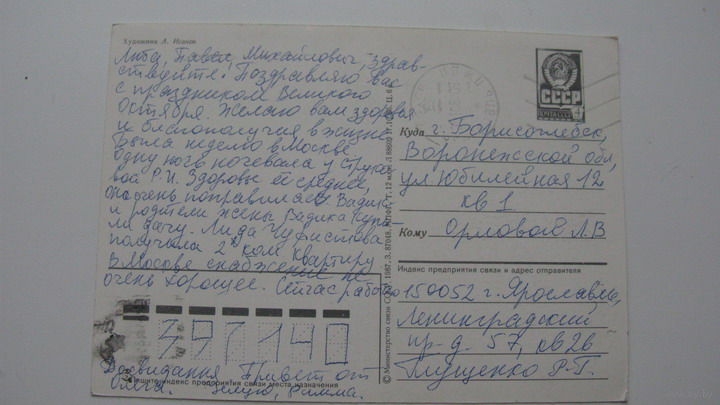 Художник Л. Иванов
Люба, Павел Михайлович, здрав-
ствуйте! Поздравляю Вас
с праздником Великого
Октября. Желаю вам здоровья
и благополучия в жизни
Была неделю в Москве
одну ночь ночевала у
вой Р.И. Здоровье ее среднее,
она очень поправилась Вадик
и родители жены Вадика купи-
ли дачу. Лида
получила 2х ком. квартиру
В Москве снабжение не
очень хорошее. Сейчас работаю
Досвидания Привет от
Олега. Целую, Римма.
СССР
ПОЧТА
4
Куда г. Борисоглебск,
Воронежской обл,
ул Юбилейная 12
кв 1
Кому Орловой Л.В
Индекс предприятия связи и адрес отправителя
150052 г. Ярославль,
Ленинградский
пр-д. 57, кв 26
Глущенко Р-Г.
397140
Пишите индекс предприятия связи места назначения
© Министерство связи СССР. 1987.